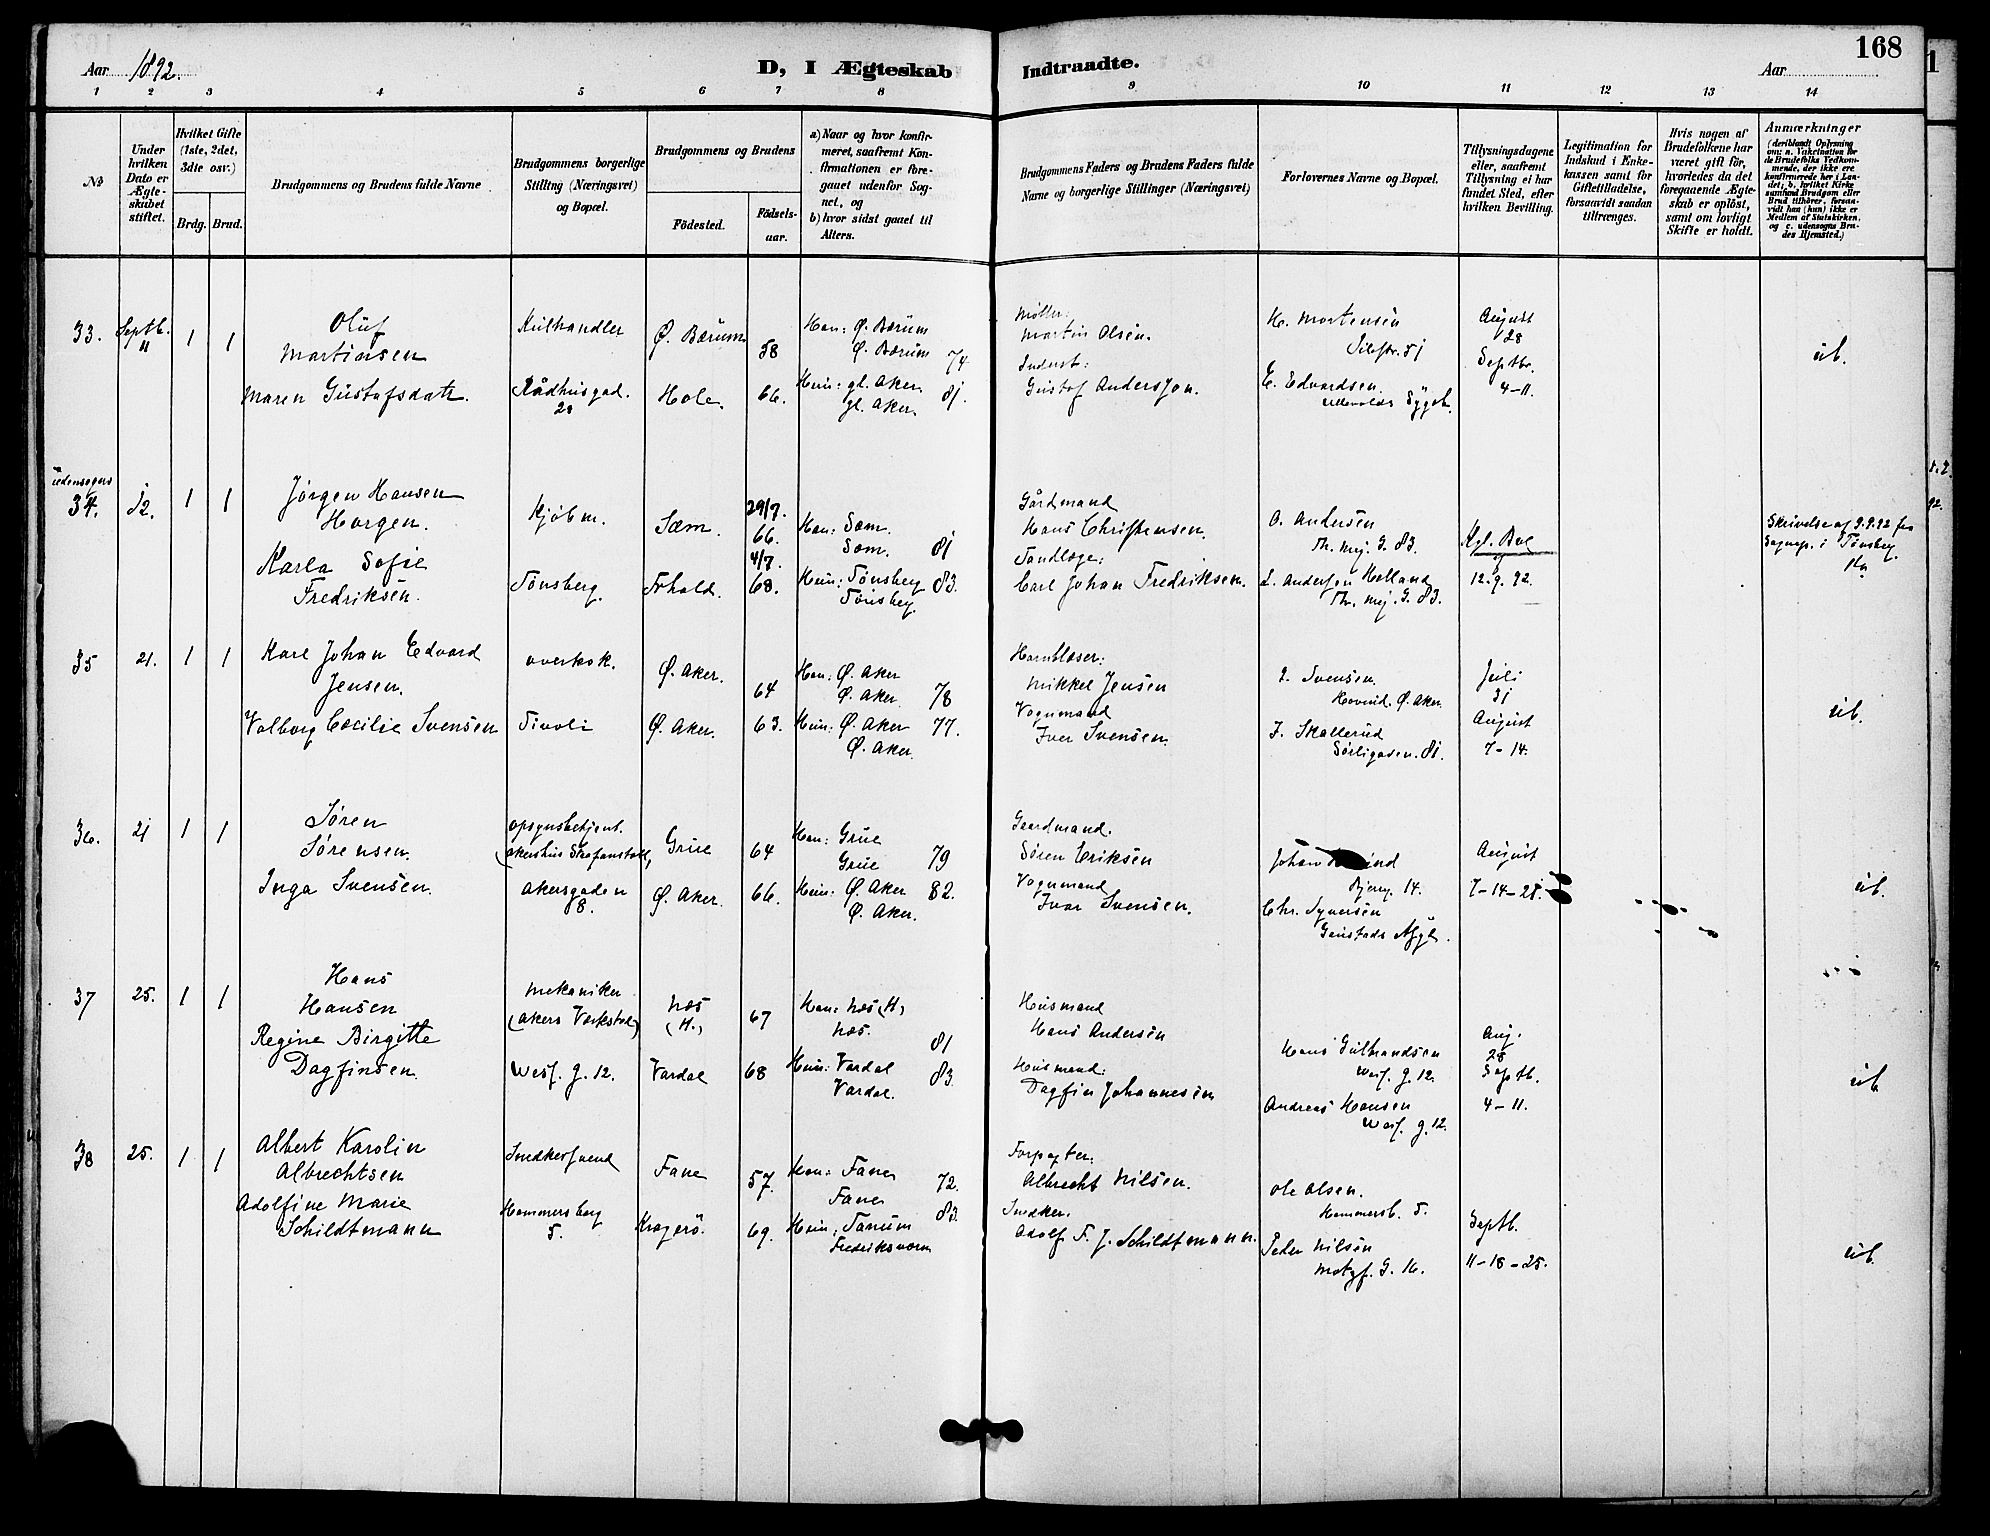 168
Aar 1892.
D, I Ægteskab Indtraadte.
Aar
1 2 3 4 5 6 7 8 9 10 11 12 13 14
No
Under hvilken Dato er Ægteskabet stiftet.
Hvilket Gifte (1ste, 2det, 3die osv.)
Brdg. Brud.
Brudgommens og Brudens fulde Navne
Brudgommens borgerlige Stilling (Næringsvei) og Bopæl.
Brudgommens og Brudens
Födested.
Födselsaar.
a) Naar og hvor konfirmeret, saafremt Konfirmationen er foregaaet udenfor Sognet, og
b) hvor sidst gaaet til Alters.
Brudgommens Faders og Brudens Faders fulde Navne og borgerlige Stillinger (Næringsvei)
Forlovernes Navne og Bopæl.
Tillysningsdagene eller, saafremt Tillysning ei har fundet Sted, efter hvilken Bevilling.
Legitimation for Indskud i Enkekassen samt for Giftetilladelse, forsaavidt saadan tiltrænges.
Hvis nogen af Brudefolkene har været gift för, hvorledes da det foregaaende Ægteskab er oplöst, samt om lovligt Skifte er holdt.
Anmærkninger
(deriblandt Oplysning om: a. Vakcination for de Brudefolks Vedkommende, der ikke ere konfirmerede her i Landet; b. hvilket Kirkesamfund Brudgom eller Brud tilhörer, forsaavidt han (hun) ikke er Medlem af Statskirken, og c. udensogns Brudes Hjemsted.)
33. Septb. 11 1 1
Oluf Martinsen
Kulhandler
Ø. Bærum 58
Han: Ø. Bærum
Ø. Bærum 74
Møller:
Martin Olsen.
H. Mortensen
Pilestr. 51
August 28
Septbr. 4-11.
Maren Gustafsdatr.
Rådhusgad. 28
Hole. 66.
Hun: gl. Aker.
gl. Aker. 81.
Inderst:
Gustaf Andersson.
E. Edvardsen
Ullevolds Sygeh.
ub.
udensogns
34. 12. 1 1
Jørgen Hansen Horgen.
Kjøbm.
Sæm. 29/7 66.
Han: Sæm.
Sæm. 81
Gårdmand
Hans Christensen.
O. Andersen
Th. Mej. G. 83.
Kgl. Bev.
12.9.92.
Karla Sofie Fredriksen.
Tønsberg.
Fr.hald. 4/7 68.
Hun: Tønsberg 83.
Tønsberg
Tandlæge:
Carl Johan Fredriksen.
L. Anderson Holland
Th. Mej. G. 83.
Skrivelse af 9.9.92 fra Sognep. i Tønsberg.
35 21. 1 1
Karl Johan Edvard Jensen.
Overkok.
Ø. Aker. 64
Han: Ø. Aker
Ø. Aker. 78
Hornblæser:
Mikkel Jensen
L. Svensen.
Hovind. Ø. Aker.
Juli 31
August 7-14.
Valborg Cecilie Svensen
Tivoli
Ø. Aker. 63.
Hun: Ø. Aker 77.
Ø. Aker.
Vognmand
Iver Svensen.
J. Skallerud
Sørligaden. 81.
ub.
36. 21 1 1
Søren Sørensen.
Opsynsbetjent.
(Akershus Strafanstalt)
Grue 64
Han: Grue
Grue 79
Gaardmand.
Søren Eriksen
Johan
Bjerrg. 14.
August
7-14-21.
Inga Svensen.
Akersgaden 8.
Ø. Aker. 66.
Hun: Ø. Aker 82.
Ø. Aker.
Vognmand
Ivar Svensen.
Chr. Syversen
Gaustads Asyl.
ub.
37 25. 1 1
Hans Hansen
Mekaniker
(Akers Værksted)
Næs (H.) 67
Han: Næs (H)
Næs. 81
Husmand
Hans Andersen
Hans Gulbrandsen
Wesf. g. 12.
Aug. 28
Septb.
4-11.
Regine Birgitte Dagfinsen.
Wesf. g. 12.
Vardal 68
Hun: Vardal 83.
Vardal.
Husmand:
Dagfin Johannesen
Andreas Hansen
Wesf. g. 12.
ub.
38 25. 1 1
Albert Karolin Albrechtsen
Snedkersvend
Fane 57.
Han: Fane 72.
Fane
Forpagter:
Albrecht Nilsen.
Ole Olsen.
Hammersb. 5.
Septb.
11-18-25.
Adolfine Marie Schildtmann
Hammersborg 5.
Kragerø. 69.
Hun: Tanum 83.
Fredriksværn
Snedker.
Adolf F. J. Schildtmann.
Peder Nilsen
Motzf. G. 16.
ub.